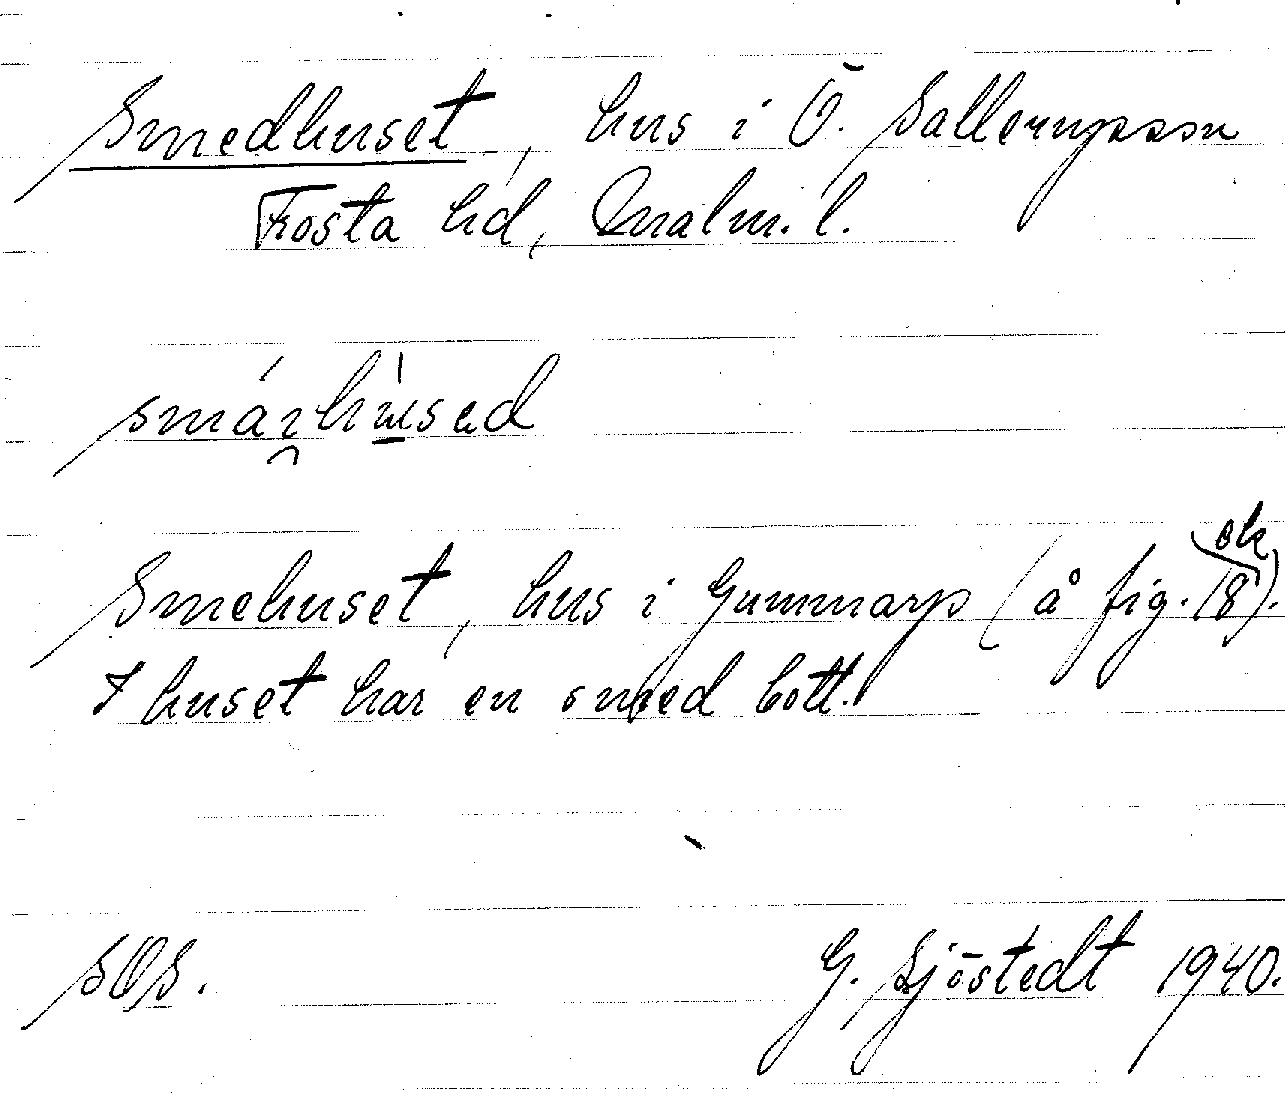 Smedhuset, hus i Ö. Sallerups sn
Frosta hd, Malm. l.
Smehuset, hus i Gunnarp (å fig. 18).
I huset har en smed bott.
SOS.
G. Sjöstedt 1940.